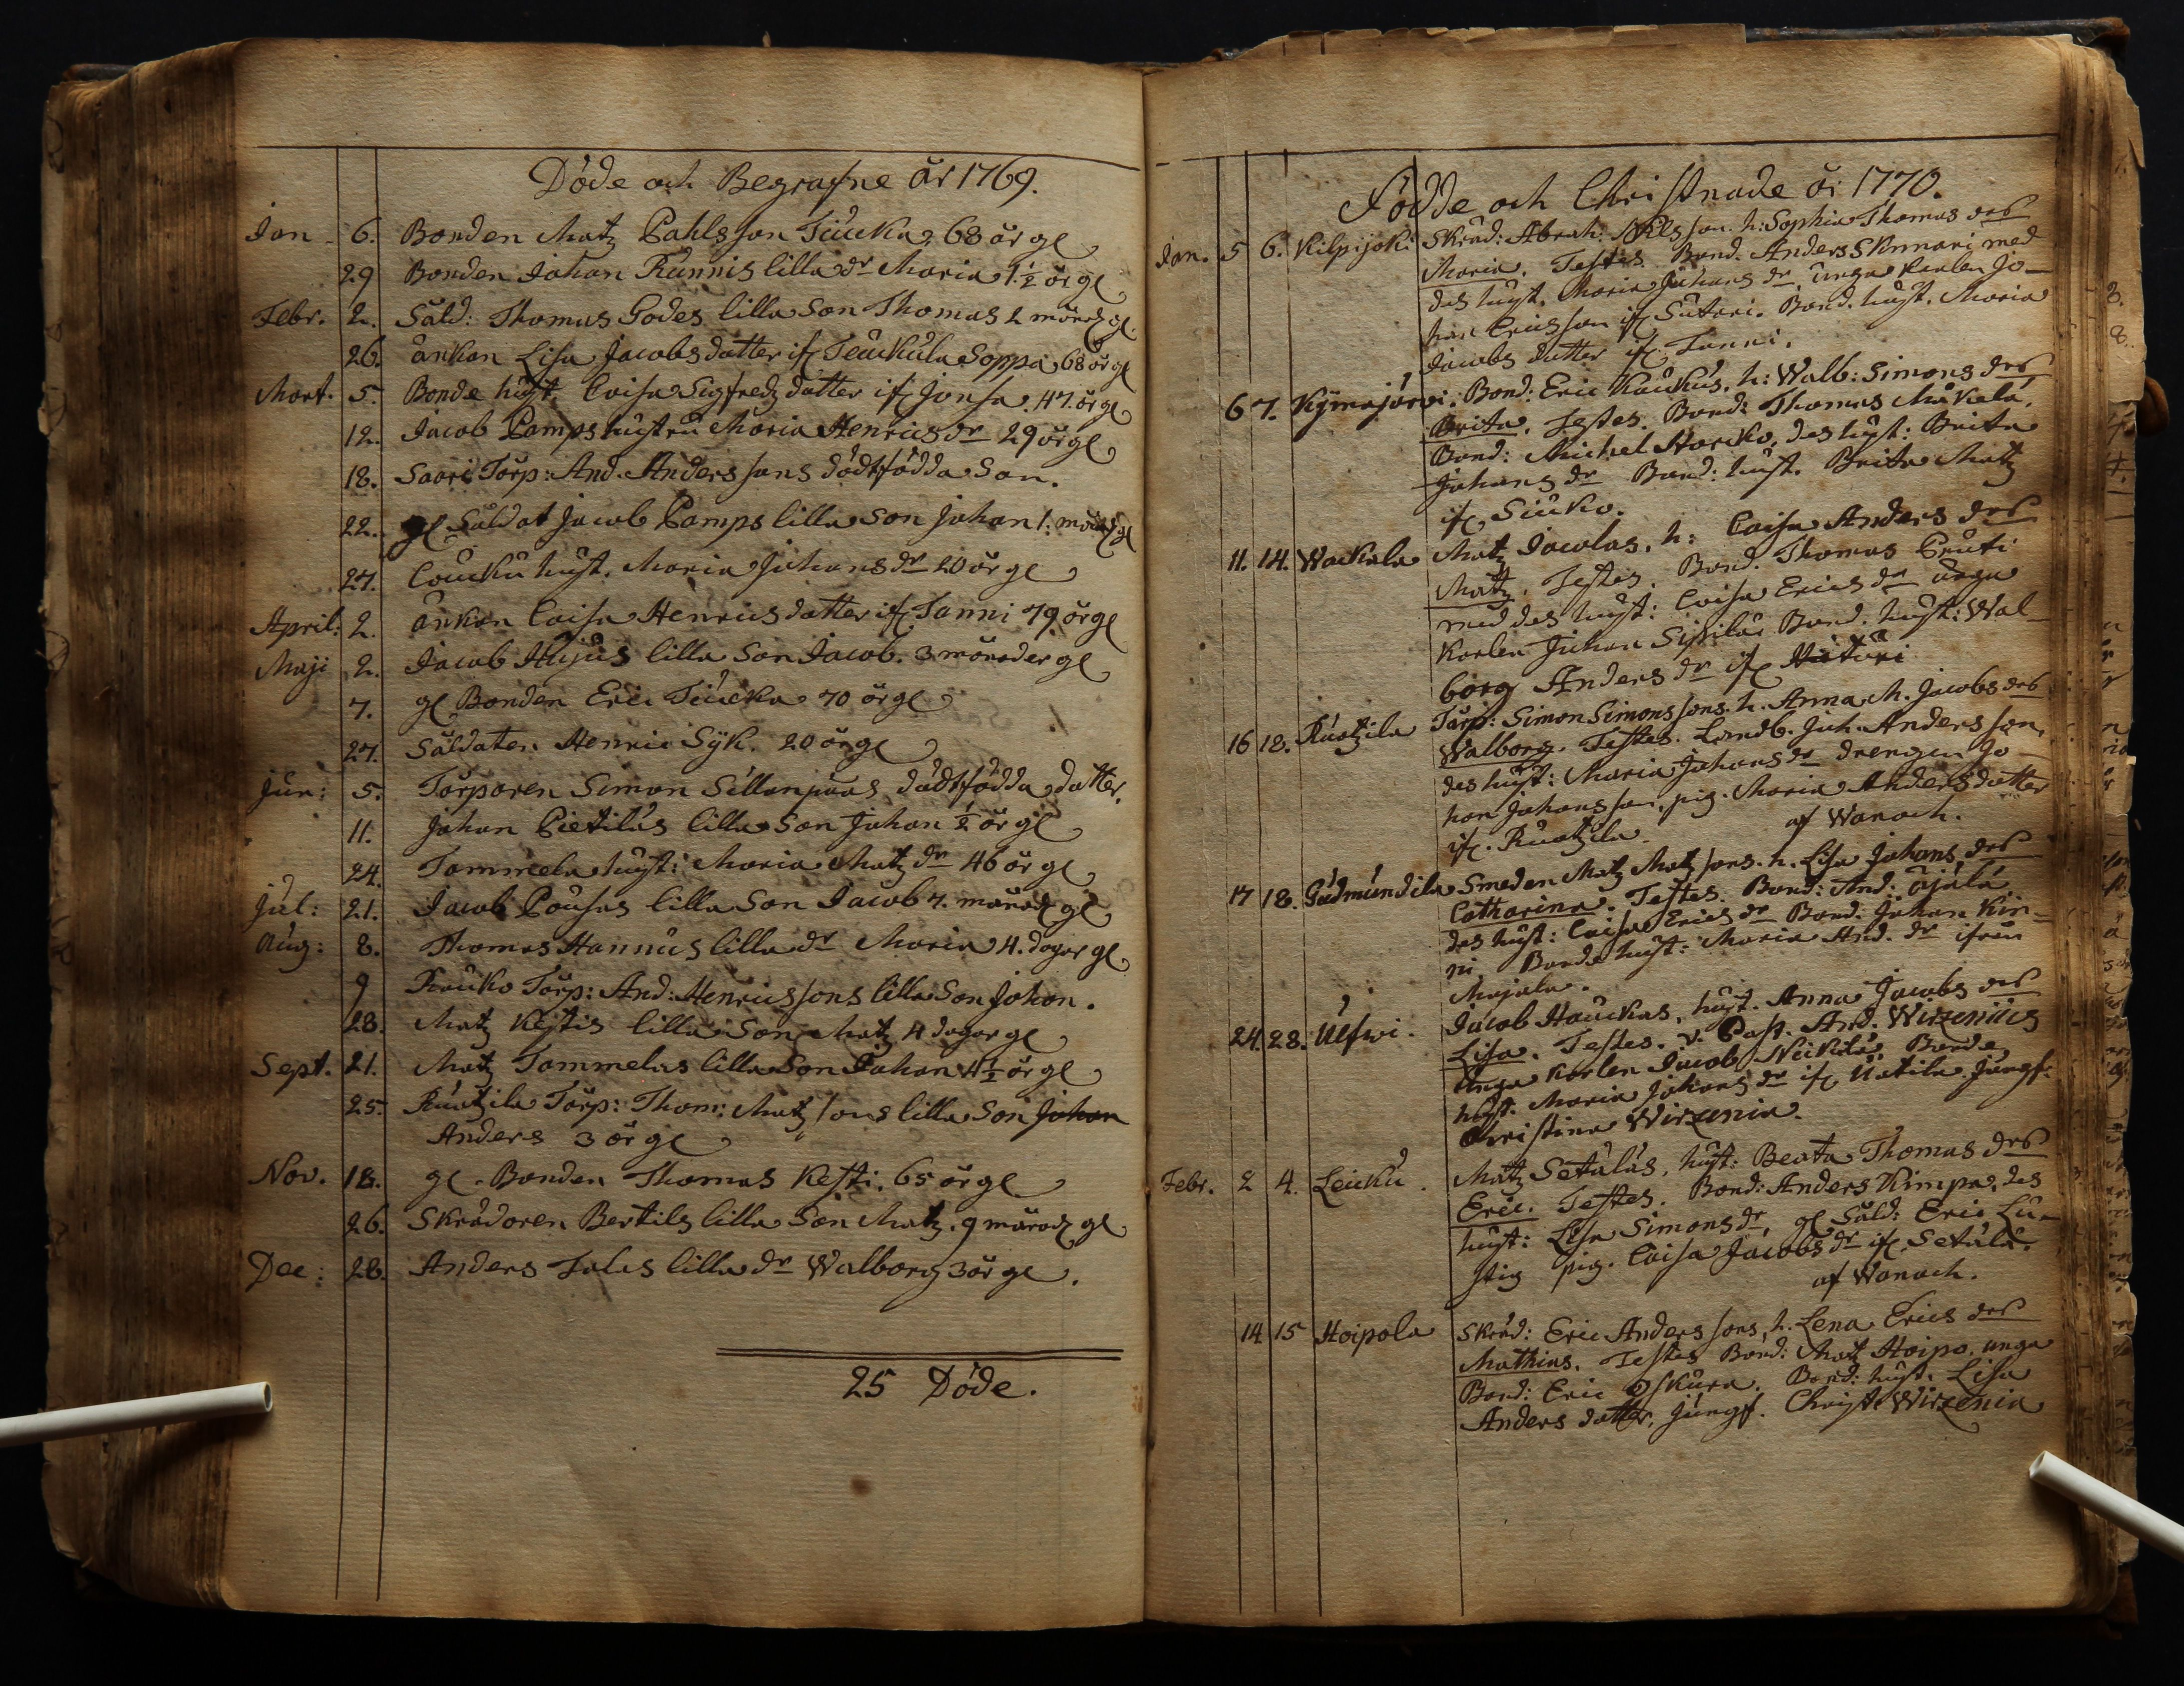 Döde och Begrafne år 1769.
Jan. 6. Bonden Matz Pahlsson Tiucka, 68 år gl
29 Bonden Johan Runnis lilla dr Maria 1 1/2 år gl
Febr. 2. Såld: Thomas Godes lilla Son Thomas 2 månad gl.
26. änkan Lisa Jacobsdatter if Soppi 68 år gl
Mart. 5. Bonde hust. Caisa Sigfredz datter if Jonsa. 47. år gl
12. Jacob Pamps hustru Maria Henricsdr 29 år gl
18. Saari Torp: And. Anderssons dödfödda Son.
22. gl Soldat Jacob Pamps lilla Son Johan 1. månad gl
27. Laucku hust. Maria Johansdr 20 år gl
April: 2. änkan Caisa Henricsdatter if Tanni 79 år gl
Maji 2. Jacob Hujus lilla Son Jacob. 3 månader gl
7. gl Bonden Eric Tiucka 70 år gl
27. Såldaten Henric Syk. 20 år gl
Jun: 5. Torparen Simon Sillanpääs dödfödda datter.
11. Johan Pietiläs lilla Son Johan 1/2 år gl
24. Tommela hust: Maria Matz dr 46 år gl
Jul: 21. Jacob Pousas lilla Son Jacob 7. månad gl
Aug: 8. Thomas Hannus lilla dr Maria 4. dagar gl.
9 Rauko Torp: And: Henricssons lilla Son Johan.
28. Matz Kestis lilla Son Matz 4 dagar gl
Sept. 21. Matz Tommelas lilla Son Johan 4 1/2 år gl
25. Ruotzila Torp: Thom: Matzsons lilla Son Johan
Anders 3 år gl
Nov. 18. gl. Bonden Thomas Kesti. 65 år gl
26. Skrädaren Bertils lilla Son Matz. 9 månad gl
Dec: 28. Anders Talas lilla dr Walborg 3 år gl.
25 Döde.
Födde och Christnade år 1770.
Jan. 5 6. Kilpijoki Skräd: Abrah: Nilsson. h: Sophia Thomas drs
Maria. Testes. Bond. Anders Skinnari med
des hust. Maria Johans dr, unga karlen Jo-
han Ericsson if Sutari. Bond. hust. Maria
Jacobs datter if Tanni.
6 7. Kymäjärvi. Bond: Eric Kaukus, h: Walb: Simons drs
Brita. Testes. Bond: Thomas Mäkelä,
Bond: Michel Starcko, des hust: Brita
Johans dr Bond: hust. Brita Matz
if Siuko.
11. 14. Wackala Matz Jacolas, h: Caisa Anders drs
Matz. Testes. Bond. Thomas Pruti
med des hust: Caisa Erics dr unga
Karlen Johan Sipilä Bond. hust: Wal-
borg Anders dr if Hituri
16 18. Ruotzila Torp: Simon Simonssons. h. Anna M. Jacobs drs
Walborg. Testes. Landb. Joh. Andersson,
des hust: Maria Johans dr drengen Jo-
han Johansson, pig. Maria Anders datter
if. Ruotzila. af Wanach.
17 18. Gudmundila Smeden Matz Matzsons. h. Lisa Johans drs
Catharina. Testes. Bond: And: Äjälä,
des hust: Caisa Erics dr Bond: Johan Kin-
ni Bonde hust: Maria And. dr ifrån
Majala.
24. 28. Ulfwi. Jacob Hauckas, hust. Anna Jacobs drs
Lisa. Testes. v. Past. And. Wirzenius
Unga Karlen Jacob Neikilä, Bonde
hust. Maria Johans dr if Uotila. Jungf:
Christina Wirzenia.
Febr. 2 4. Leicku. Matz Setäläs, hust: Beata Thomas drs
Eric. Testes. Bond: Anders Kimpa, des
hust: Lisa Simons dr, gl Såld: Eric Lu-
stig pig. Caisa Jacobs dr if Setälä.
af Wanach.
14 15 Hoipola Skräd: Eric Anderssons, h. Lena Erics drs
Mathias. Testes Bond: Matz Hoipo, unga
Bond: Eric Oskura. Bond: hust. Lisa
Anders datter, Jungf. Christ. Wirzenia